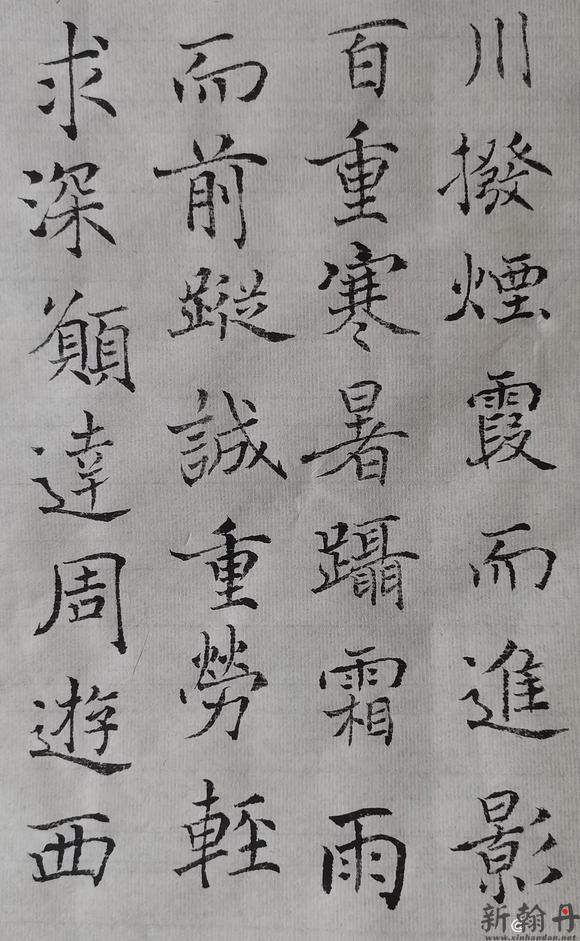 川撥煙霞而進影
百重寒暑躡霜雨
而前蹤誠重勞輕
求深願達周遊西
新翰丹
www.xinhandan.net